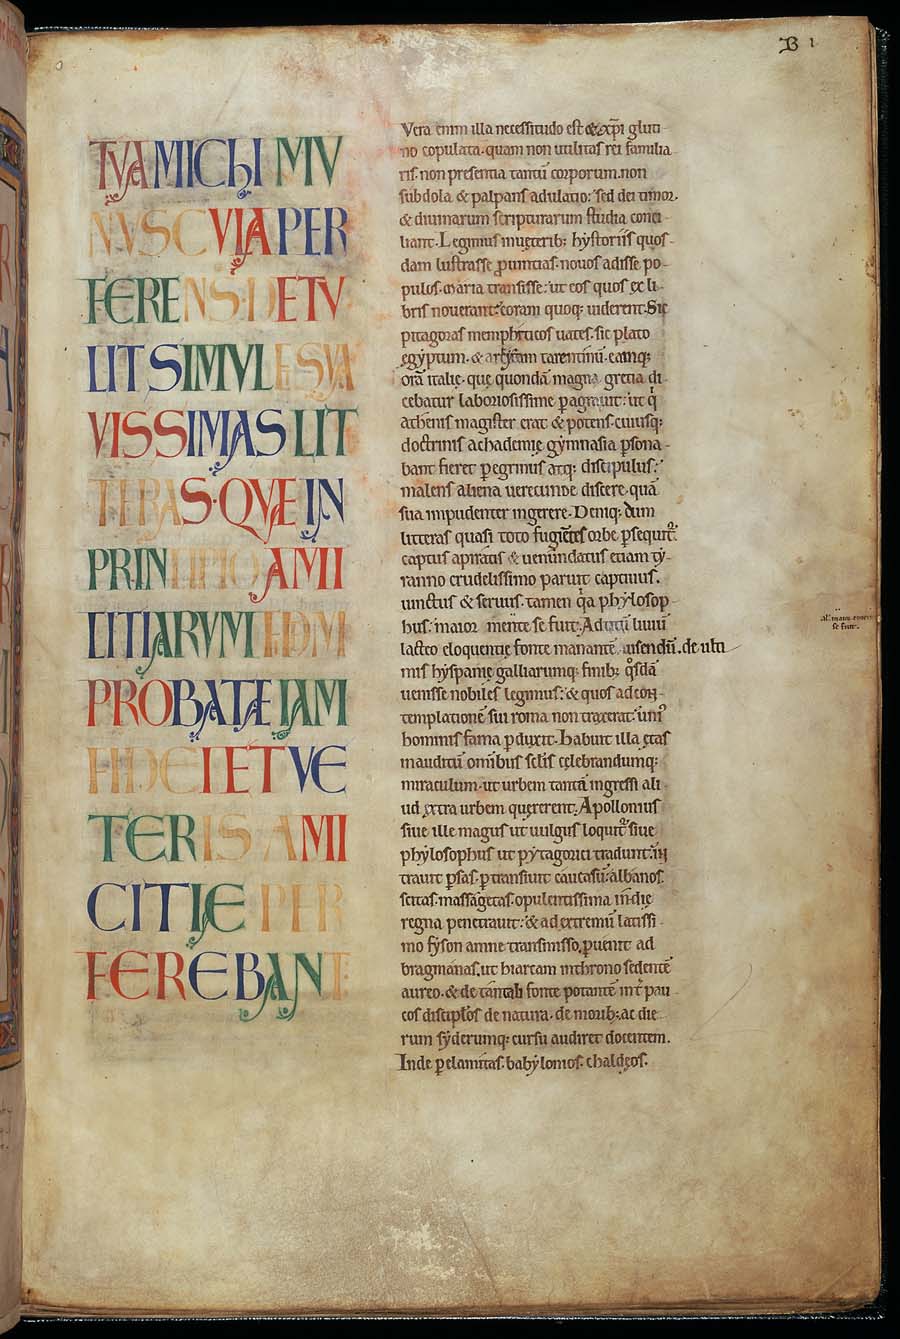 B 1
TVA MIChI MV
NVSCVLA PER
FERENS·DETV
LIT SIMVL E SVA
VISSIMAS LIT
TERAS·QVÆ IN
PRINCIPIO AMI
LITIARVM FIDEM
PROBATÆ IAM
FIDEI ET VE
TERIS AMI
CITIÆ PER
FEREBANT
Vera enim illa necessitudo est & xp̄i gluti-
no copulata· quam non utilitas rei familia-
ris· non presentia tantū corporum· non
subdola & palpans adulatio: sed dei timor·
& diuinarum scripturarum studia conci-
liant· Legimus in ueterib; hystoriis quos-
dam lustrasse prouintias· nouos adisse po-
pulos· maria transisse: ut eos quos ex li-
bris nouerant: coram quoq; uiderent· Sic
pitagoras memphiticos uates· sic plato
ęgyptum· & archytam tarentinū· eamq;
orā italię· quę quondā magna gretia di-
cebatur laboriosissime peragrauit: ut q̄
athenis magister erat & potens· cuiusq;
doctrinis achademię gymnasia psona-
bant fieret pegrinus atq; discipulus:
malens aliena uerecunde discere· quā
sua impudenter ingerere· Deniq; dum
litteras quasi toto fugientes orbe psequit̄
captus a piratis & uenundatus etiam ty-
ranno crudelissimo paruit captiuus·
uinctus & seruus· tamen q̄a phylosop-
hus· maior emente se fuit· Ad titū liuiū
lacteo eloquentię fonte manantē uisendū· de ulti-
mis hyspanię galliarumq; finib; q̄sdā
uenisse nobiles legimus: & quos ad con-
templationē sui roma non traxerat: uni'
hominis fama pduxit· Habuit illa ętas
inauditū omībus sclis cęlebrandumq;
miraculum· ut urbem tantā ingressi ali-
ud extra urbem quęrerent· Apollonius
siue ille magus ut uulgus loquit̄ siue
phylosophus ut pytagorici tradunt: in-
trauit psas· ptransiuit caucasū· albanos·
scitas· massagetas· opulentissima indię
regna penetrauit: & ad extremū latissi-
mo fyson amne transmisso, puenit ad
bragmanas, ut hiarcam in throno sedentē
aureo· & de tantali fonte potantē int̄ pau-
cos disciplos de natura· de morib;· ac die-
rum syderumq; cursu audiret docentem·
Inde p elamitas· babylonios· chaldęos·